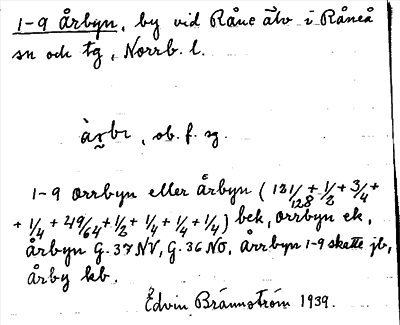 1-9 Årbyn, by vid Råne älv i Råneå
sn och tg, Norrb. l.
àrbı, ob. f. sg.
1-9 orrbyn eller årbyn (121/128 + 1/2 + 3/4 +
+ 1/4 + 49/64 + 1/2 + 1/4 + 1/4 + 1/4) bek, orrbyn ek,
årbyn G. 37 NV, G. 36 NO, Årrbyn 1-9 skatte jb,
årby kb.
Edvin Brännström 1939.